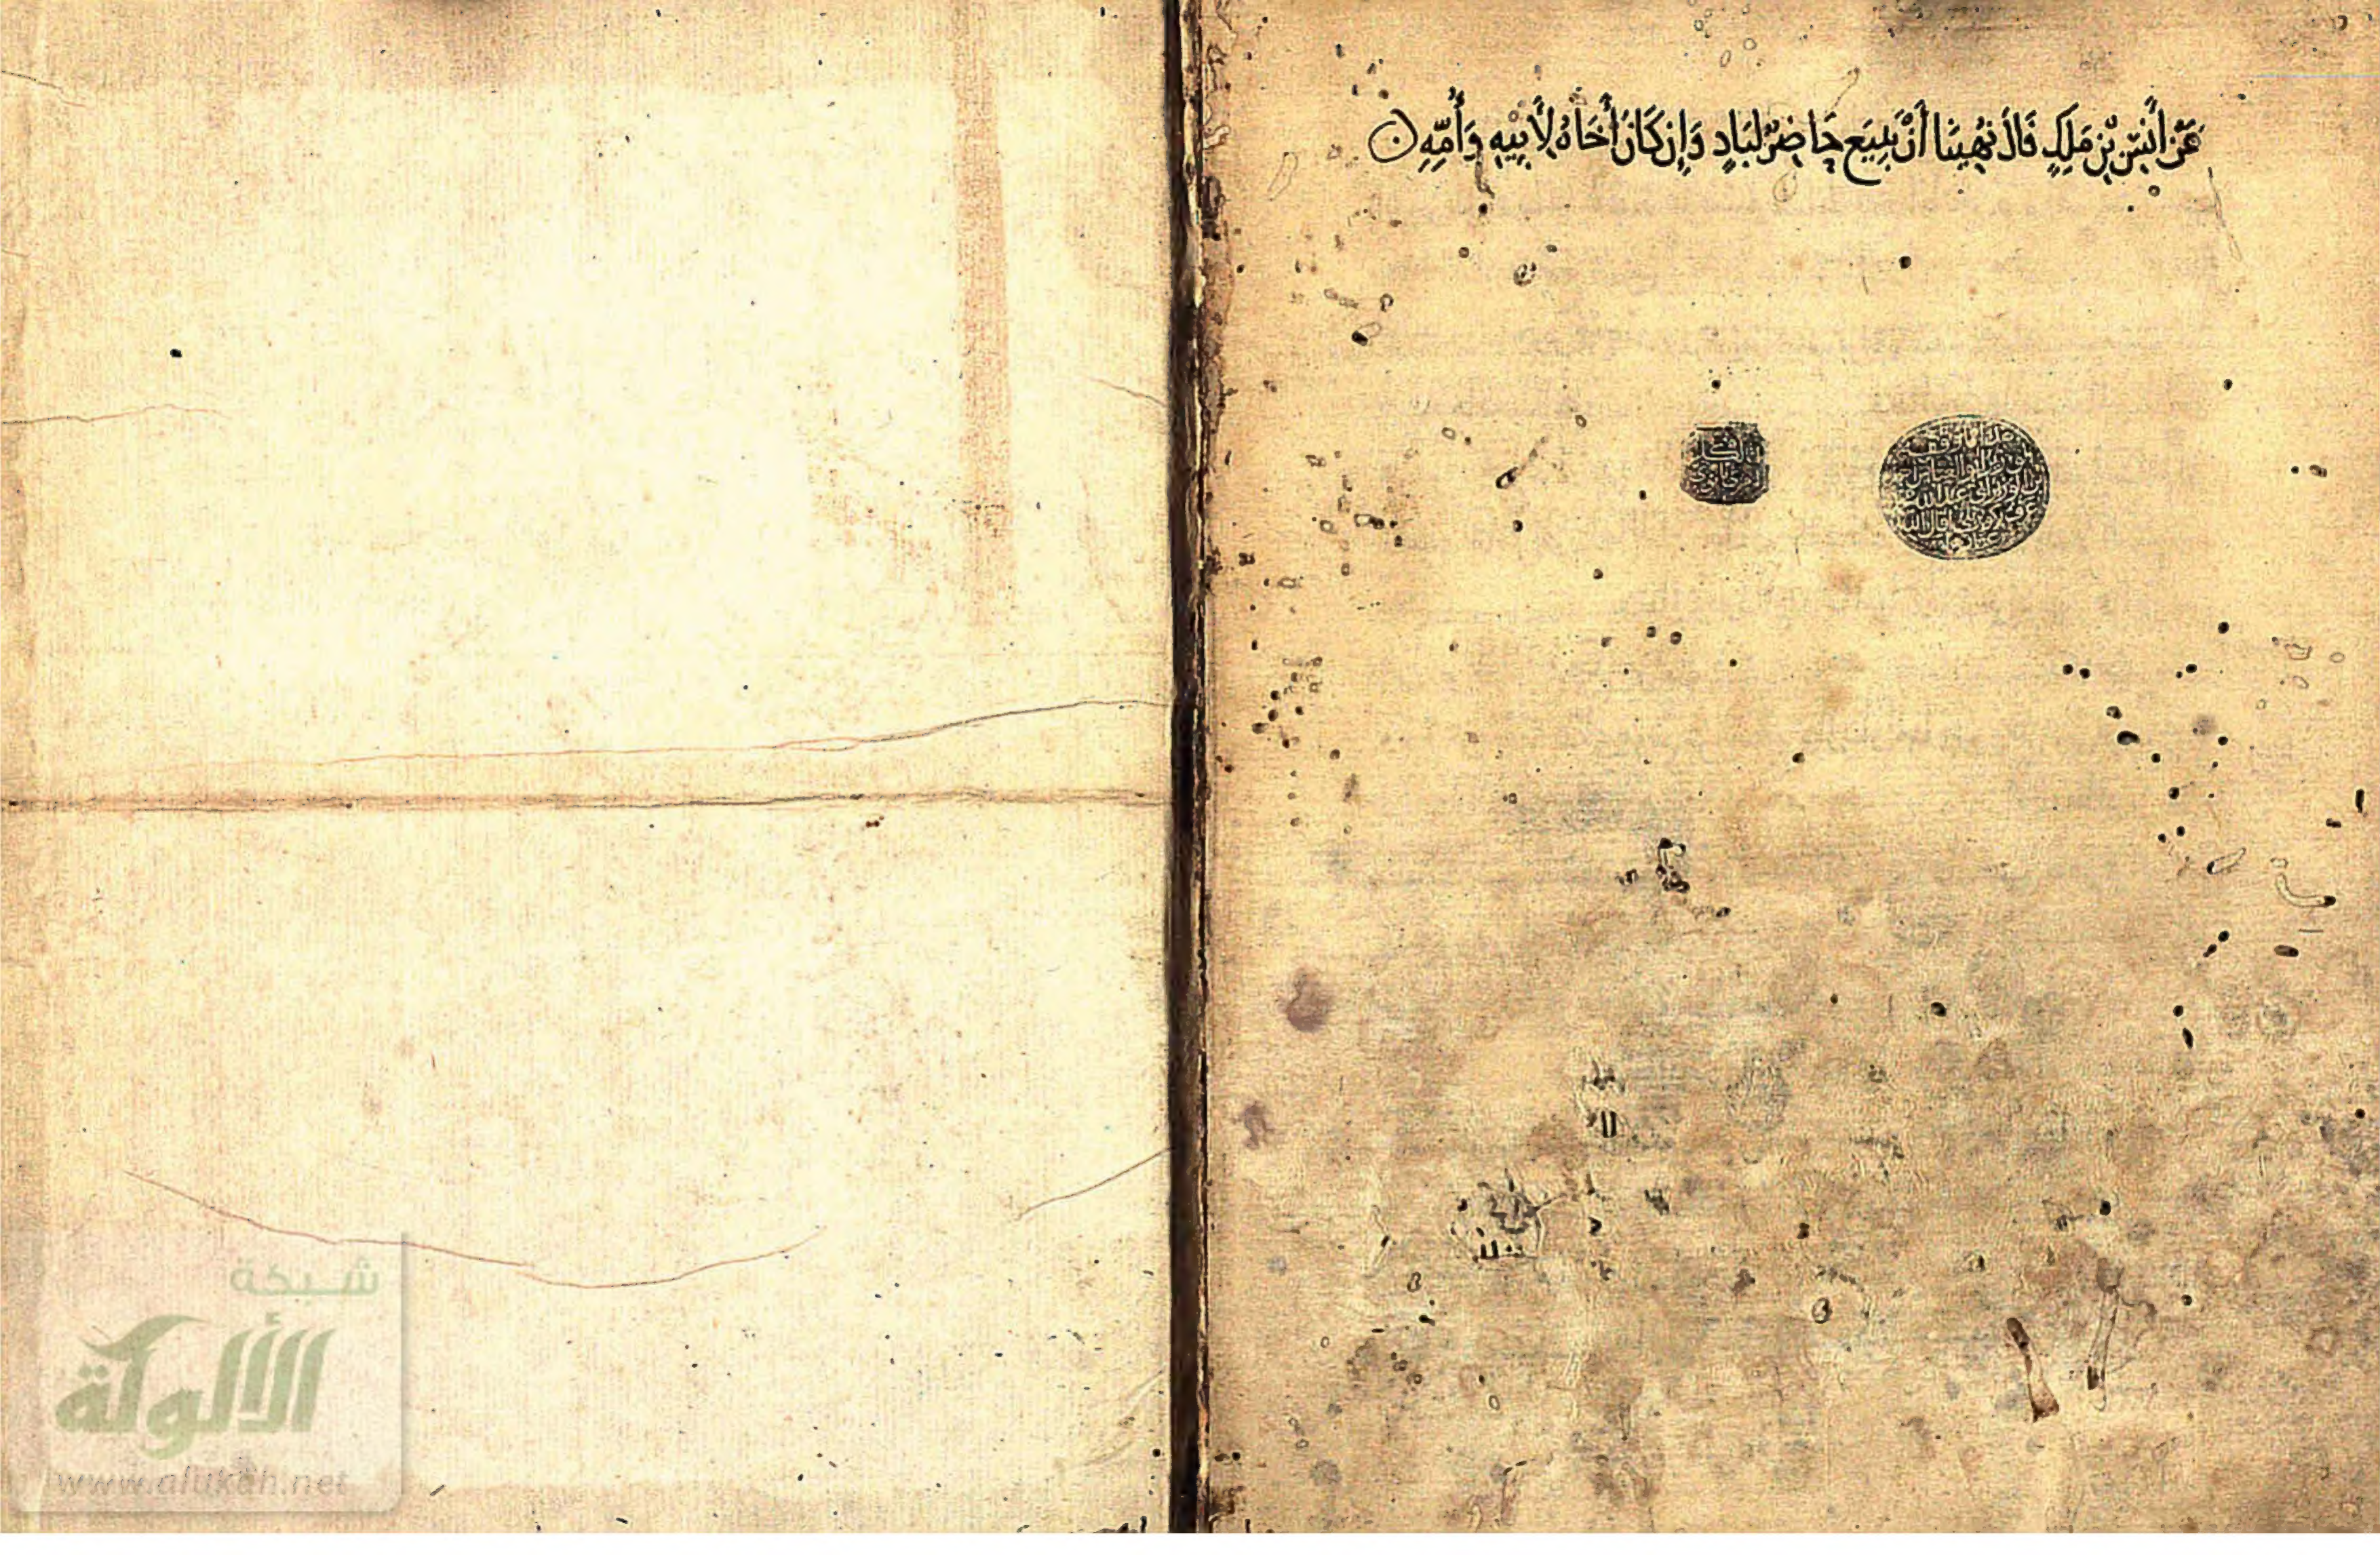 عَنْ أَنَسِ بْنِ مَلِكٍ قَالَ نُهِينَا أَنْ يَبِيعَ حَاضِرٌ لِبَادٍ وَإِنْ كَانَ أَخَاهُ لِأَبِيهِ وَأُمِّهِ
شبكة
الألوكة
www.alukah.net